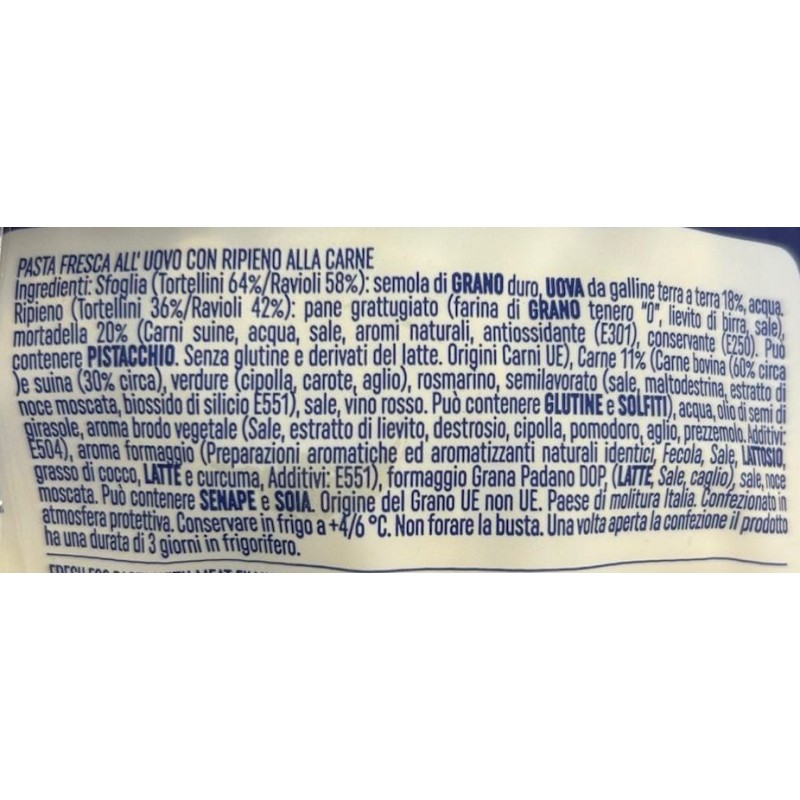 PASTA FRESCA ALL' UOVO CON RIPIENO ALLA CARNE
Ingredienti: Sfoglia (Tortellini 64%/Ravioli 58%): semola di GRANO duro, UOVA da galline terra a terra 18%, acqua.
Ripieno (Tortellini 36%/Ravioli 42%): pane grattugiato (farina di GRANO tenero "0", lievito di birra, sale),
mortadella 20% (Carni suine, acqua, sale, aromi naturali, antiossidante (E301), conservante (E250). Può
contenere PISTACCHIO. Senza glutine e derivati del latte. Origini Carni UE), Carne 11% (Carne bovina (60% circa
)e suina (30% circa), verdure (cipolla, carote, aglio), rosmarino, semilavorato (sale, maltodestrina, estratto di
noce moscata, biossido di silicio E551), sale, vino rosso. Può contenere GLUTINE e SOLFITI), acqua, olio di semi di
girasole, aroma brodo vegetale (Sale, estratto di lievito, destrosio, cipolla, pomodoro, aglio, prezzemolo. Additivi:
E504), aroma formaggio (Preparazioni aromatiche ed aromatizzanti naturali identici, Fecola, Sale, LATTOSIO,
grasso di cocco, LATTE e curcuma, Additivi: E551), formaggio Grana Padano DOP, (LATTE, Sale, caglio), sale, noce
moscata. Può contenere SENAPE e SOIA. Origine del Grano UE non UE. Paese di molitura Italia. Confezionato in
atmosfera protettiva. Conservare in frigo a +4/6 °C. Non forare la busta. Una volta aperta la confezione il prodotto
ha una durata di 3 giorni in frigorifero.